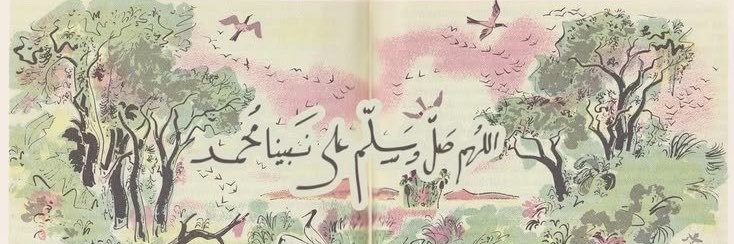 اللهم صَلّ وَسَلِّم على نَبينا مُحمد